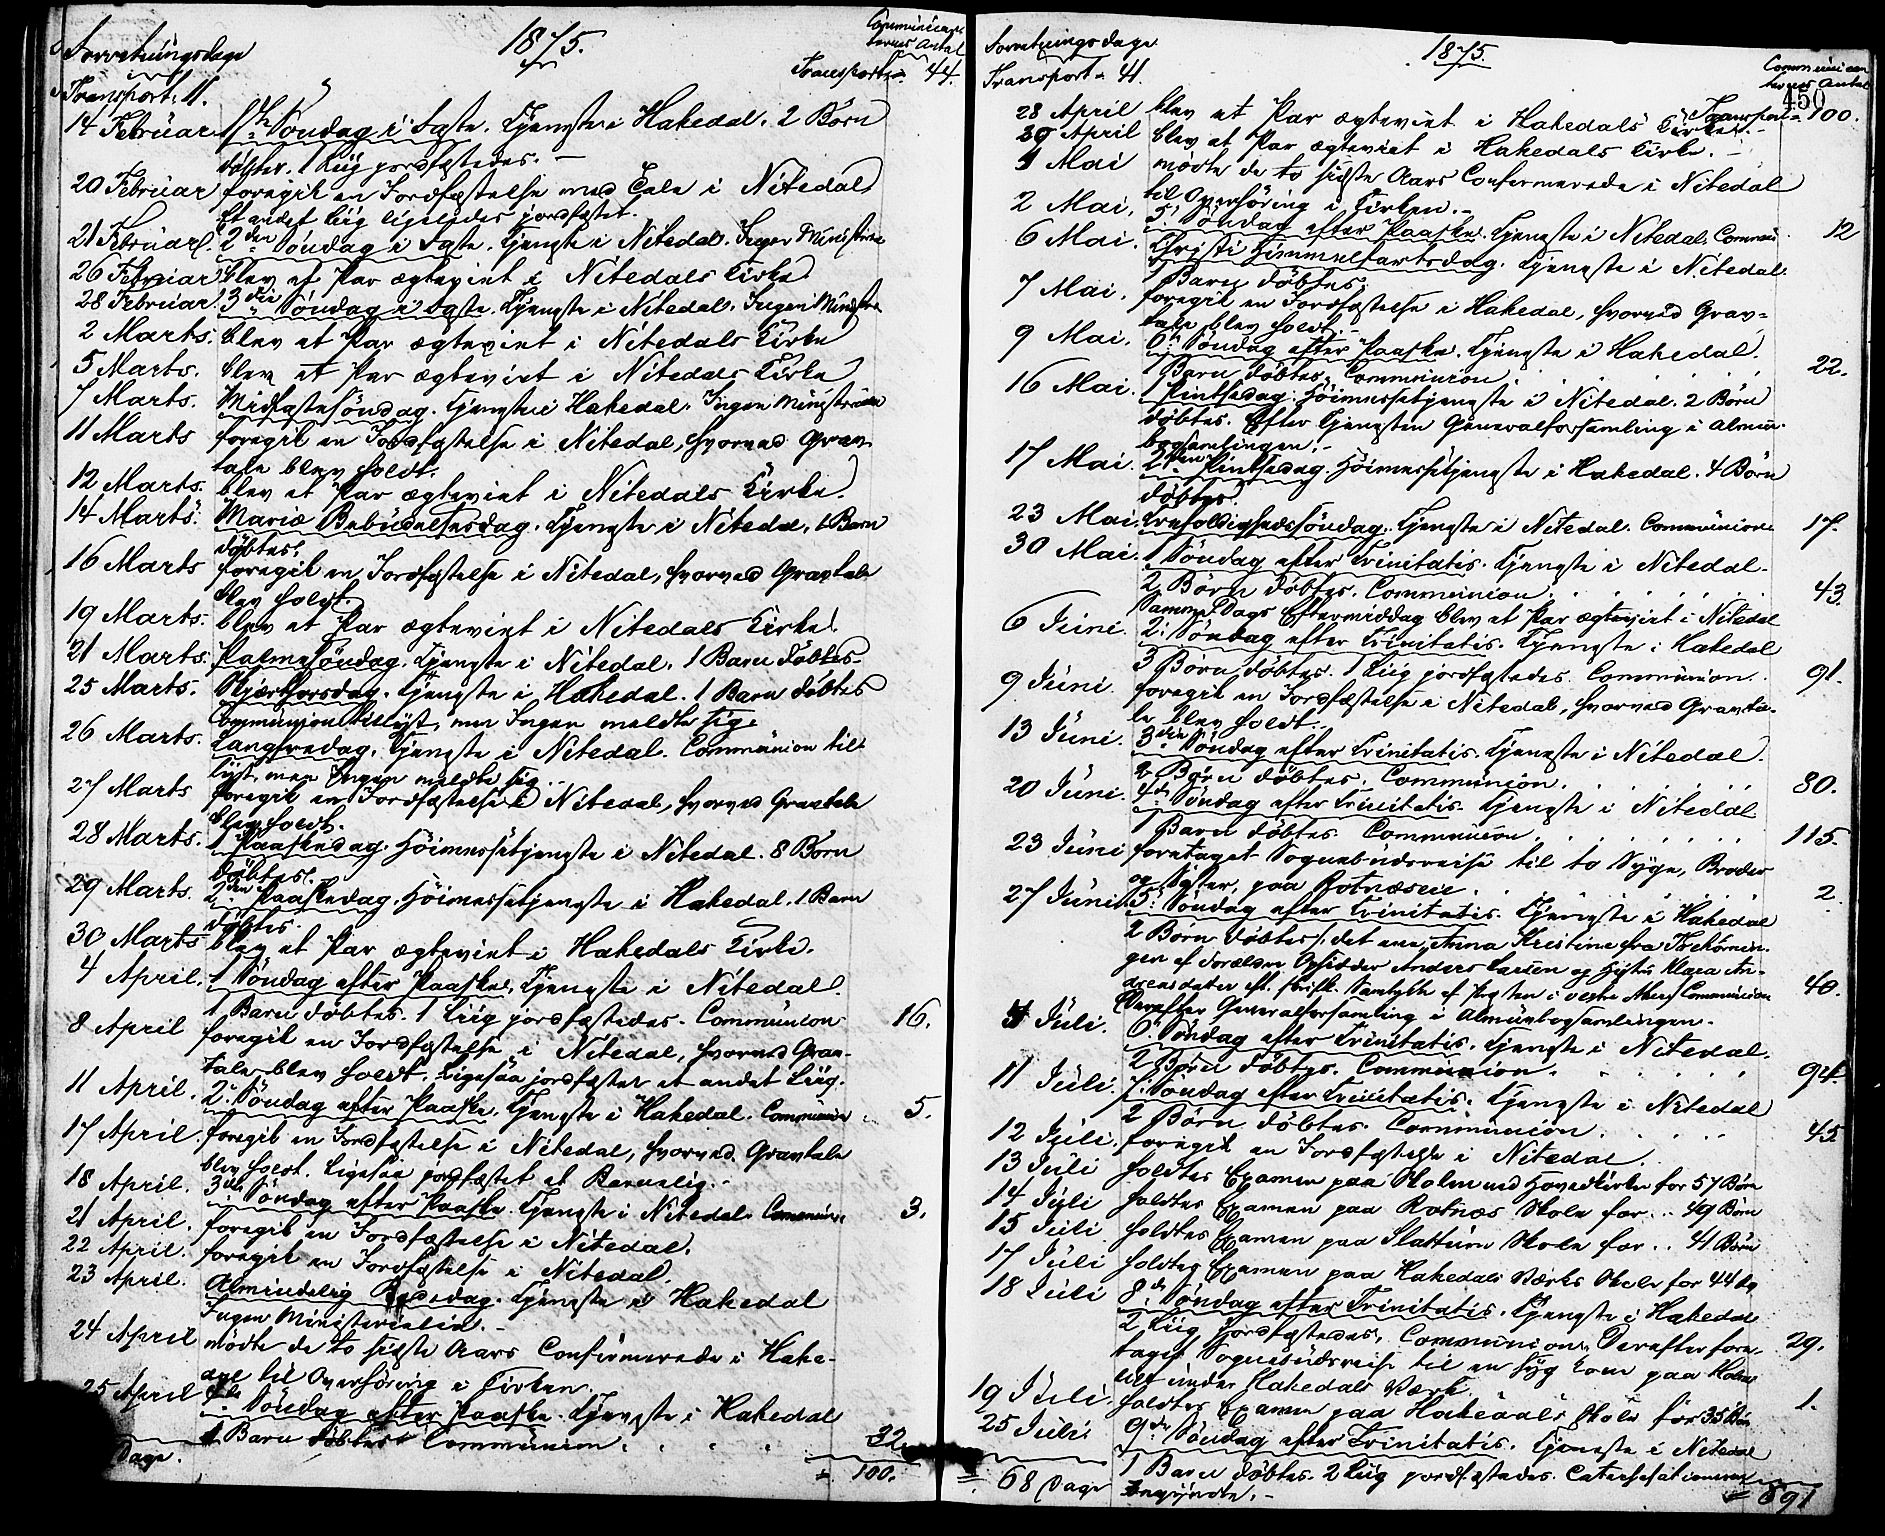 Forretningsdage
1875.
Communican-
ternes Antal
Transport = 11.
Transport = 44.
14 Februar 1ste Søndag i Faste. Tjeneste i Hakedal. 2 Børn
døbtes. 1 Liig jordfæstedes. –
20 Februar foregik en Jordfæstelse med Tale i Nitedal
Et andet Liig ligeledes jordfæstet.
21 Februar. 2den Søndag i Faste. Tjeneste i Nitedal. Ingen Ministerie
26 Februar blev et Par ægteviet i Nitedals Kirke
28 Februar 3die Søndag i Faste. Tjeneste i Nitedal. Ingen Ministe
2 Marts. blev et Par ægteviet i Nitedals Kirke
5 Marts. blev et Par ægteviet i Nitedals Kirke
7 Marts. Midfastesøndag. Tjeneste i Hakedal. Ingen Ministerie
11 Marts foregik en Jordfæstelse i Nitedal, hvorved Grav-
tale blev holdt.
12 Marts. blev et Par ægteviet i Nitedals Kirke.
14 Marts. Mariæ Bebudelsesdag. Tjeneste i Nitedal, 1 Barn
døbtes.
16 Marts foregik en Jordfæstelse i Nitedal, hvorved Gravtale
blev holdt.
19 Marts. blev et Par ægteviet i Nitedals Kirke.
21 Marts. Palmesøndag. Tjeneste i Nitedal. 1 Barn døbtes.
25 Marts. Skjærthorsdag. Tjeneste i Hakedal. 1 Barn døbtes
Communion tillyst, men Ingen meldte sig.
26 Marts. Langfredag. Tjeneste i Nitedal. Communion til-
lyst, men Ingen meldte sig.
27 Marts foregik en Jordfæstelse i Nitedal, hvorved Gravtale
blev holdt.
28 Marts. 1 Paaskedag. Høimessetjeneste i Nitedal. 8 Børn
døbtes.
29 Marts. 2den Paaskedag. Høimessetjeneste i Hakedal. 1 Barn
døbtes.
30 Marts blev et Par ægteviet i Hakedals Kirke.
4 April. 1 Søndag efter Paaske. Tjeneste i Nitedal.
1 Barn døbtes. 1 Liig jordfæstedes. Communion 16.
8 April foregik en Jordfæstelse i Nitedal, hvorved Grav-
tale blev holdt. Ligesaa jordfæstet et andet Liig.
11 April. 2. Søndag efter Paaske. Tjeneste i Hakedal. Communion 5.
17 April. foregik en Jordfæstelse i Nitedal, hvorved Gravtale
blev holdt. Ligesaa jordfæstet et Barnelig. –
18 April. 3die Søndag efter Paaske. Tjeneste i Nitedal. Communion 3.
21 April. foregik en Jordfæstelse i Nitedal.
22 April. foregik en Jordfæstelse i Nitedal.
23 April. Almindelig Bededag. Tjeneste i Hakedal
Ingen Ministerialia. –
24 April mødte de to sidste Aars Confirmerede i Hake-
dal til Overhøring i Kirken.
25 April 4de Søndag efter Paaske. Tjeneste i Hakedal
1 Barn døbtes. Communion. . . . 32.
Dage. = 100.
Forretningsdage
1875.
Communican
ternes Antal
450
Transport = 41.
Transport = 100.
28 April blev et Par ægteviet i Hakedals Kirke. –
30 April blev et Par ægteviet i Hakedals Kirke. –
1 Mai mødte de to sidste Aars Confirmerede i Nitedal
til Overhøring i Kirken. –
2 Mai. 5. Søndag efter Paaske. Tjeneste i Nitedal. Commun. 12
6 Mai. Christi Himmelfartsdag. Tjeneste i Nitedal.
1 Barn døbtes.
7 Mai. foregik en Jordfæstelse i Hakedal, hvorved Grav-
tale blev holdt. –
9 Mai. 6. Søndag efter Paaske. Tjeneste i Hakedal.
1 Barn døbtes. Communion . . . . . 22.
16 Mai. 1 Pintsedag. Høimessetjeneste i Nitedal. 2 Børn
døbtes. Efter Tjenesten Generalforsamling i Almue-
bogsamlingen. –
17 Mai. 2den Pintsedag. Høimessetjeneste i Hakedal. 4 Børn
døbtes.
23 Mai. Trefoldighedssøndag. Tjeneste i Nitedal. Communion. 17.
30 Mai. 1 Søndag efter Trinitatis. Tjeneste i Nitedal.
2 Børn døbtes. Communion. . . . . . 43.
Samme Dags Eftermiddag blev et Par ægteviet i Nitedal
6 Juni. 2. Søndag efter Trinitatis. Tjeneste i Hakedal
3 Børn døbtes. 1 Liig jordfæstedes. Communion. 91.
9 Juni. foregik en Jordfæstelse i Nitedal, hvorved Gravta-
le blev holdt.
13 Juni. 3die Søndag efter Trinitatis. Tjeneste i Nitedal.
2 Børn døbtes. Communion. . . . . . 80.
20 Juni. 4de Søndag efter Trinitatis. Tjeneste i Nitedal
1 Barn døbtes. Communion. . . . . . 115.
23 Juni foretaget Sognebudsreise til to Syge, Broder
og Søster, paa Rotnæseie . . . . . 2.
27 Juni 5. Søndag efter Trinitatis. Tjeneste i Hakedal
2 Børn døbtes, det ene, Anna Kristine fra
gen af Forældre Opsidder Anders Larsen og Hustru Klara An-
dreasdatter eft. skriftl. Samtykke af Præsten i Vestre Aker. Communion 40.
Derefter Generalforsamling i Almuebogsamlingen.
4 Juli. 6. Søndag efter Trinitatis. Tjeneste i Nitedal.
2 Børn døbtes. Communion. . . . . 94.
11 Juli. 7. Søndag efter Trinitatis. Tjeneste i Nitedal
2 Børn døbtes. Communion. . . . . 45.
12 Juli. foregik en Jordfæstelse i Nitedal.
13 Juli holdtes Examen paa Skolen ved Hovedkirken for 57 Børn
14 Juli holdtes Examen paa Rotnæs Skole for .. 49 Børn
15 Juli holdtes Examen paa Slattum Skole for .. 41 Børn
17 Juli holdtes Examen paa Hakedals Værks Skole for 44 B.
18 Juli 8de Søndag efter Trinitatis. Tjeneste i Hakedal
2 Liig jordfæstedes. Communion. Derefter fore-
taget Sognebudsreise til en syg Kone paa 29.
under Hakedals Værk. 1.
19 Juli. holdtes Examen paa Hakedals Skole for 35 Bør
25 Juli. 9de Søndag efter Trinitatis. Tjeneste i Nitedal
1 Barn døbtes. 2 Liig jordfæstedes. Catechisationerne
begyndte. –
= 68 Dage
= 691